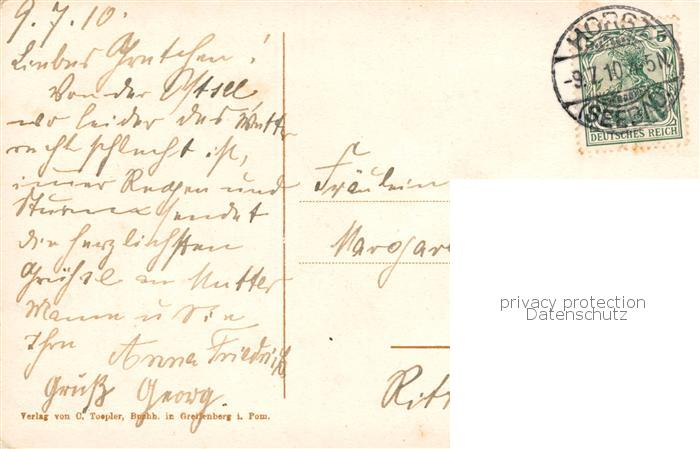 9.7.10.
Liebes Gretchen!
Von der Ostsee,
wo leider das Wetter
recht schlecht ist,
immer Regen und
Sturm sendet
die herzlichsten
Grüße an Mutter
Mama u Sie
Ihre Anna Friedrich
Gruß Georg.
Verlag von C. Toepler, Buchh. in Greifenberg i. Pom.
HORST
-9.7.10 5N
(SEEBAD)
5
DEUTSCHES REICH
Fräulein
Margar
Ritt
privacy protection
Datenschutz